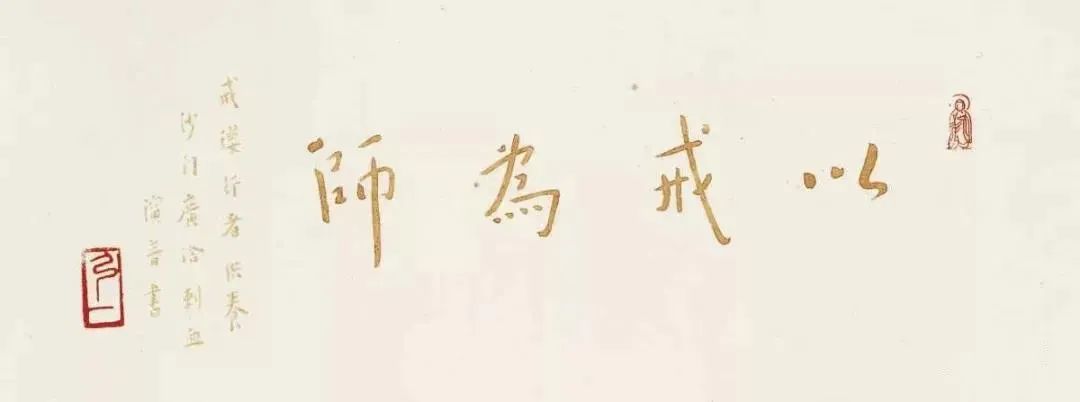 以戒為師
戒行者供養
沙門廣洽刺血
演普書
弘一